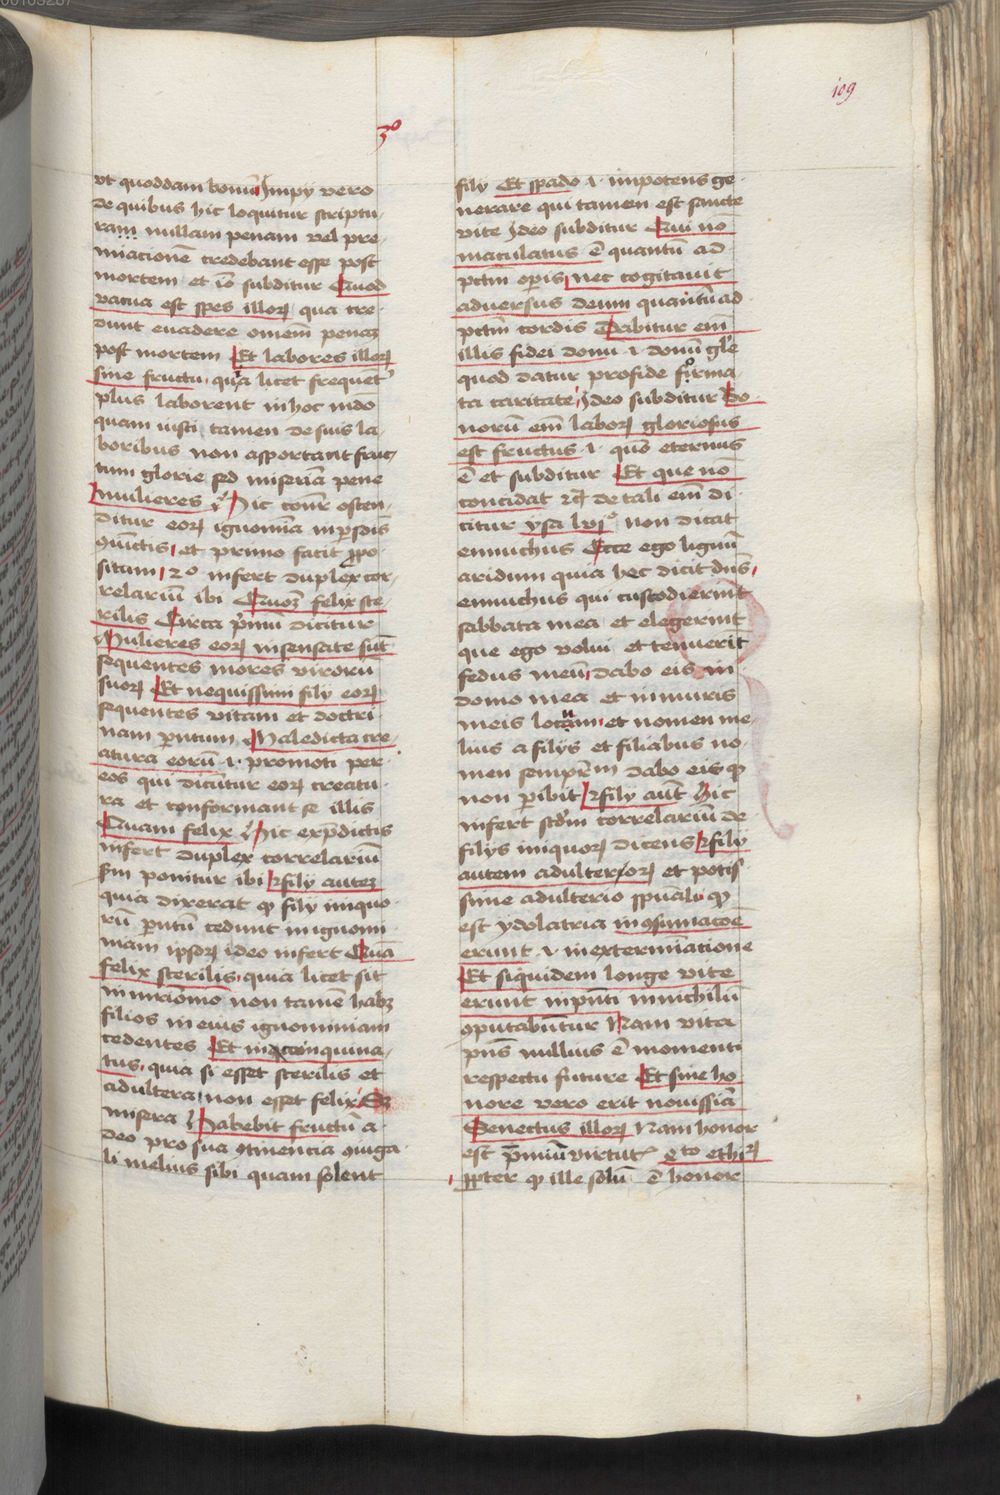 00103287
109
3º
vt quoddam bonū Jmpÿ vero
de quibus hic loquitur scriptu
ram nullam penam vel pre
miacionē credebant esse post
mortem et iō subditur Quod
vacua est spes illoꝝ qua cre
dunt euadere omnem penaꝫ
post mortem Et labores illoꝝ
sine fructu quia licet frequent͛
plus laborent in hoc mūdo
quam iusti tamen de suis la
boribus non asportant fruc
tum glorie sed miseriā pene
Mulieres Hic conꝛ osten
ditur eoꝝ ignomīa in ꝑsōis
ꝯiūctis et primo facit ꝓpo
situm 2º infert duplex cor
relariū ibi Quoꝫ felix ste
rilis Circa pͥmū dicitur
Mulieres eoꝝ insensate sūt
sequentes mores viroꝛū
suoꝝ Et nequissimi filÿ eoꝝ
sequentes vitam et doctri
nam pͣntum Maledicta cre
atura eorū .i. promoti per
eos qui dicūtur eoꝝ creatu
ra et conformant se illis
Quam felix Hic ex p̄dictis
infert duplex correlariū
scd̄m ponitur ibi Filÿ auteꝫ
quia dixerat ꝙ filÿ iniquo
rū pͣntū cedunt in ignomi
niam ipsoꝝ ideo infert Quā
felix sterilis quia licet sit
in mr̄iomo non tamē habꝫ
filios in eius ignominiam
cedentes Et incoinquina
tus quia si esset sterilis et
adultera non esset felix sꝫ
misera Habebit fructū a
deo pro sua ꝯtinencia ꝯiuga
li melius sibi quam solent
filÿ Et spado .i. impotens ge
nerare qui tamen est sancte
vite Jdeo subditur Qui nō
maculatus ē quantū ad
pctm̄ opis nec cogitauit
aduersus deum quantū ad
pctm̄ cordis Dabitur em̄
illis fidei donū .i. donū glīe
quod datur pro fide forma
ta caritate Jdeo subditur Bo
norū em̄ laboꝝ gloriosus
est fructus .i. quō eternus
ē et subditur Et que nō
concidat rc̄ de tali em̄ di
citur ysa lvjº non dicat
ennuchus Ecce ego lignū
aridum quia hec dicit dn̄s
ennuchus qui custodierint
sabbata mea et elegerint
que ego volui et tenuerīt
fedus meū dabo eis in
domo mea et in muris
meis locum et nomen me
lius a filÿs et filiabus no
men sempr̄m dabo eis ꝙ
non pͥbit Filÿ aūt Hic
infert scd̄m correlariū de
filÿs iniquoꝝ dicens Filÿ
autem adulteroꝝ et potis
sime adulterio spūali ꝙ
est ydolatria in ꝯsumacōe
erunt .i. in exterminatione
Et siquidem longe vite
erunt in pn̄ti in nichilū
ꝯputabūtur Nam vita
pn̄s nullius ē momenti
respectu future Et sine ho
nore vero erit nouissiā
Senectus illoꝝ Nam honor
est pͥmiū virtut͛ 4to ethiꝝ
ꝓpter ꝙ ille solū ē honor